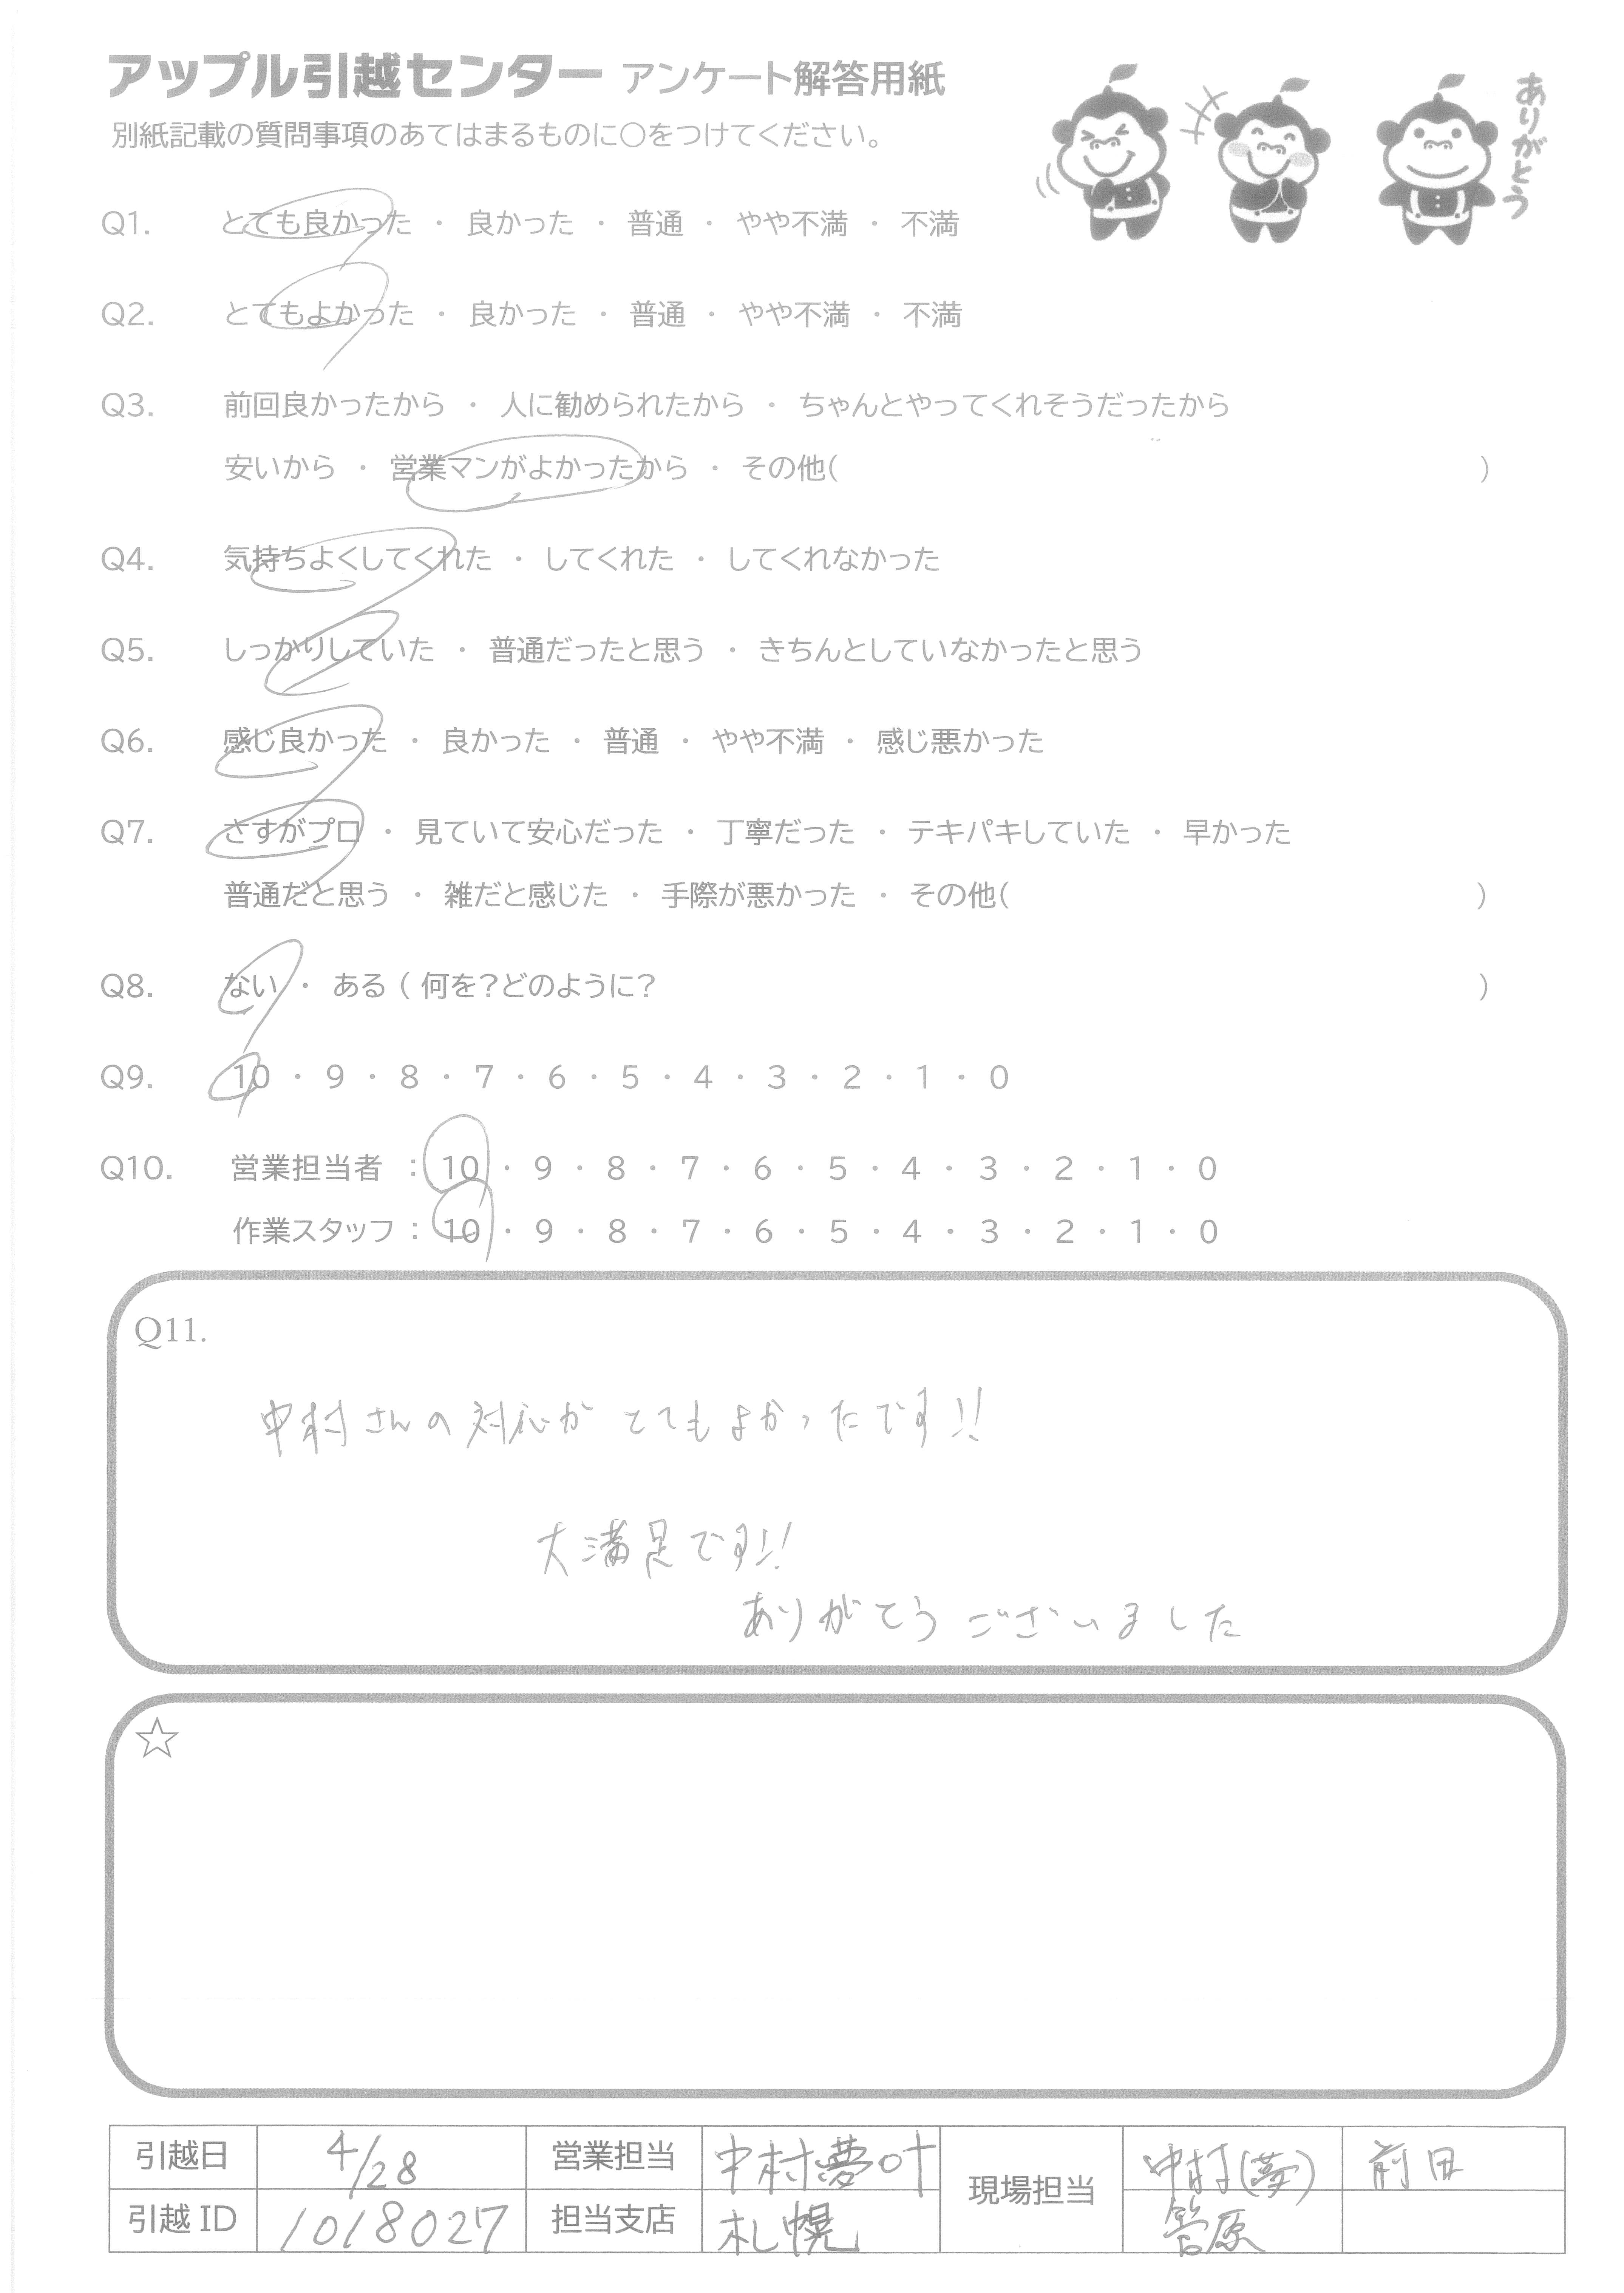 アップル引越センター アンケート解答用紙
ありがとう
別紙記載の質問事項のあてはまるものに○をつけてください。
Q1. とても良かった ・ 良かった ・ 普通 ・ やや不満 ・ 不満
Q2. とてもよかった ・ 良かった ・ 普通 ・ やや不満 ・ 不満
Q3. 前回良かったから ・ 人に勧められたから ・ ちゃんとやってくれそうだったから
安いから ・ 営業マンがよかったから ・ その他( )
Q4. 気持ちよくしてくれた ・ してくれた ・ してくれなかった
Q5. しっかりしていた ・ 普通だったと思う ・ きちんとしていなかったと思う
Q6. 感じ良かった ・ 良かった ・ 普通 ・ やや不満 ・ 感じ悪かった
Q7. さすがプロ ・ 見ていて安心だった ・ 丁寧だった ・ テキパキしていた ・ 早かった
普通だと思う ・ 雑だと感じた ・ 手際が悪かった ・ その他( )
Q8. ない ・ ある ( 何を？どのように？ )
Q9. 10 ・ 9 ・ 8 ・ 7 ・ 6 ・ 5 ・ 4 ・ 3 ・ 2 ・ 1 ・ 0
Q10. 営業担当者 : 10 ・ 9 ・ 8 ・ 7 ・ 6 ・ 5 ・ 4 ・ 3 ・ 2 ・ 1 ・ 0
作業スタッフ : 10 ・ 9 ・ 8 ・ 7 ・ 6 ・ 5 ・ 4 ・ 3 ・ 2 ・ 1 ・ 0
Q11.
中村さんの対応がとてもよかったです!!
大満足です!!
ありがとうございました
☆
引越日 4/28 営業担当 中村夢叶 現場担当 中村(夢) 前田
引越 ID 1018027 担当支店 札幌 菅原